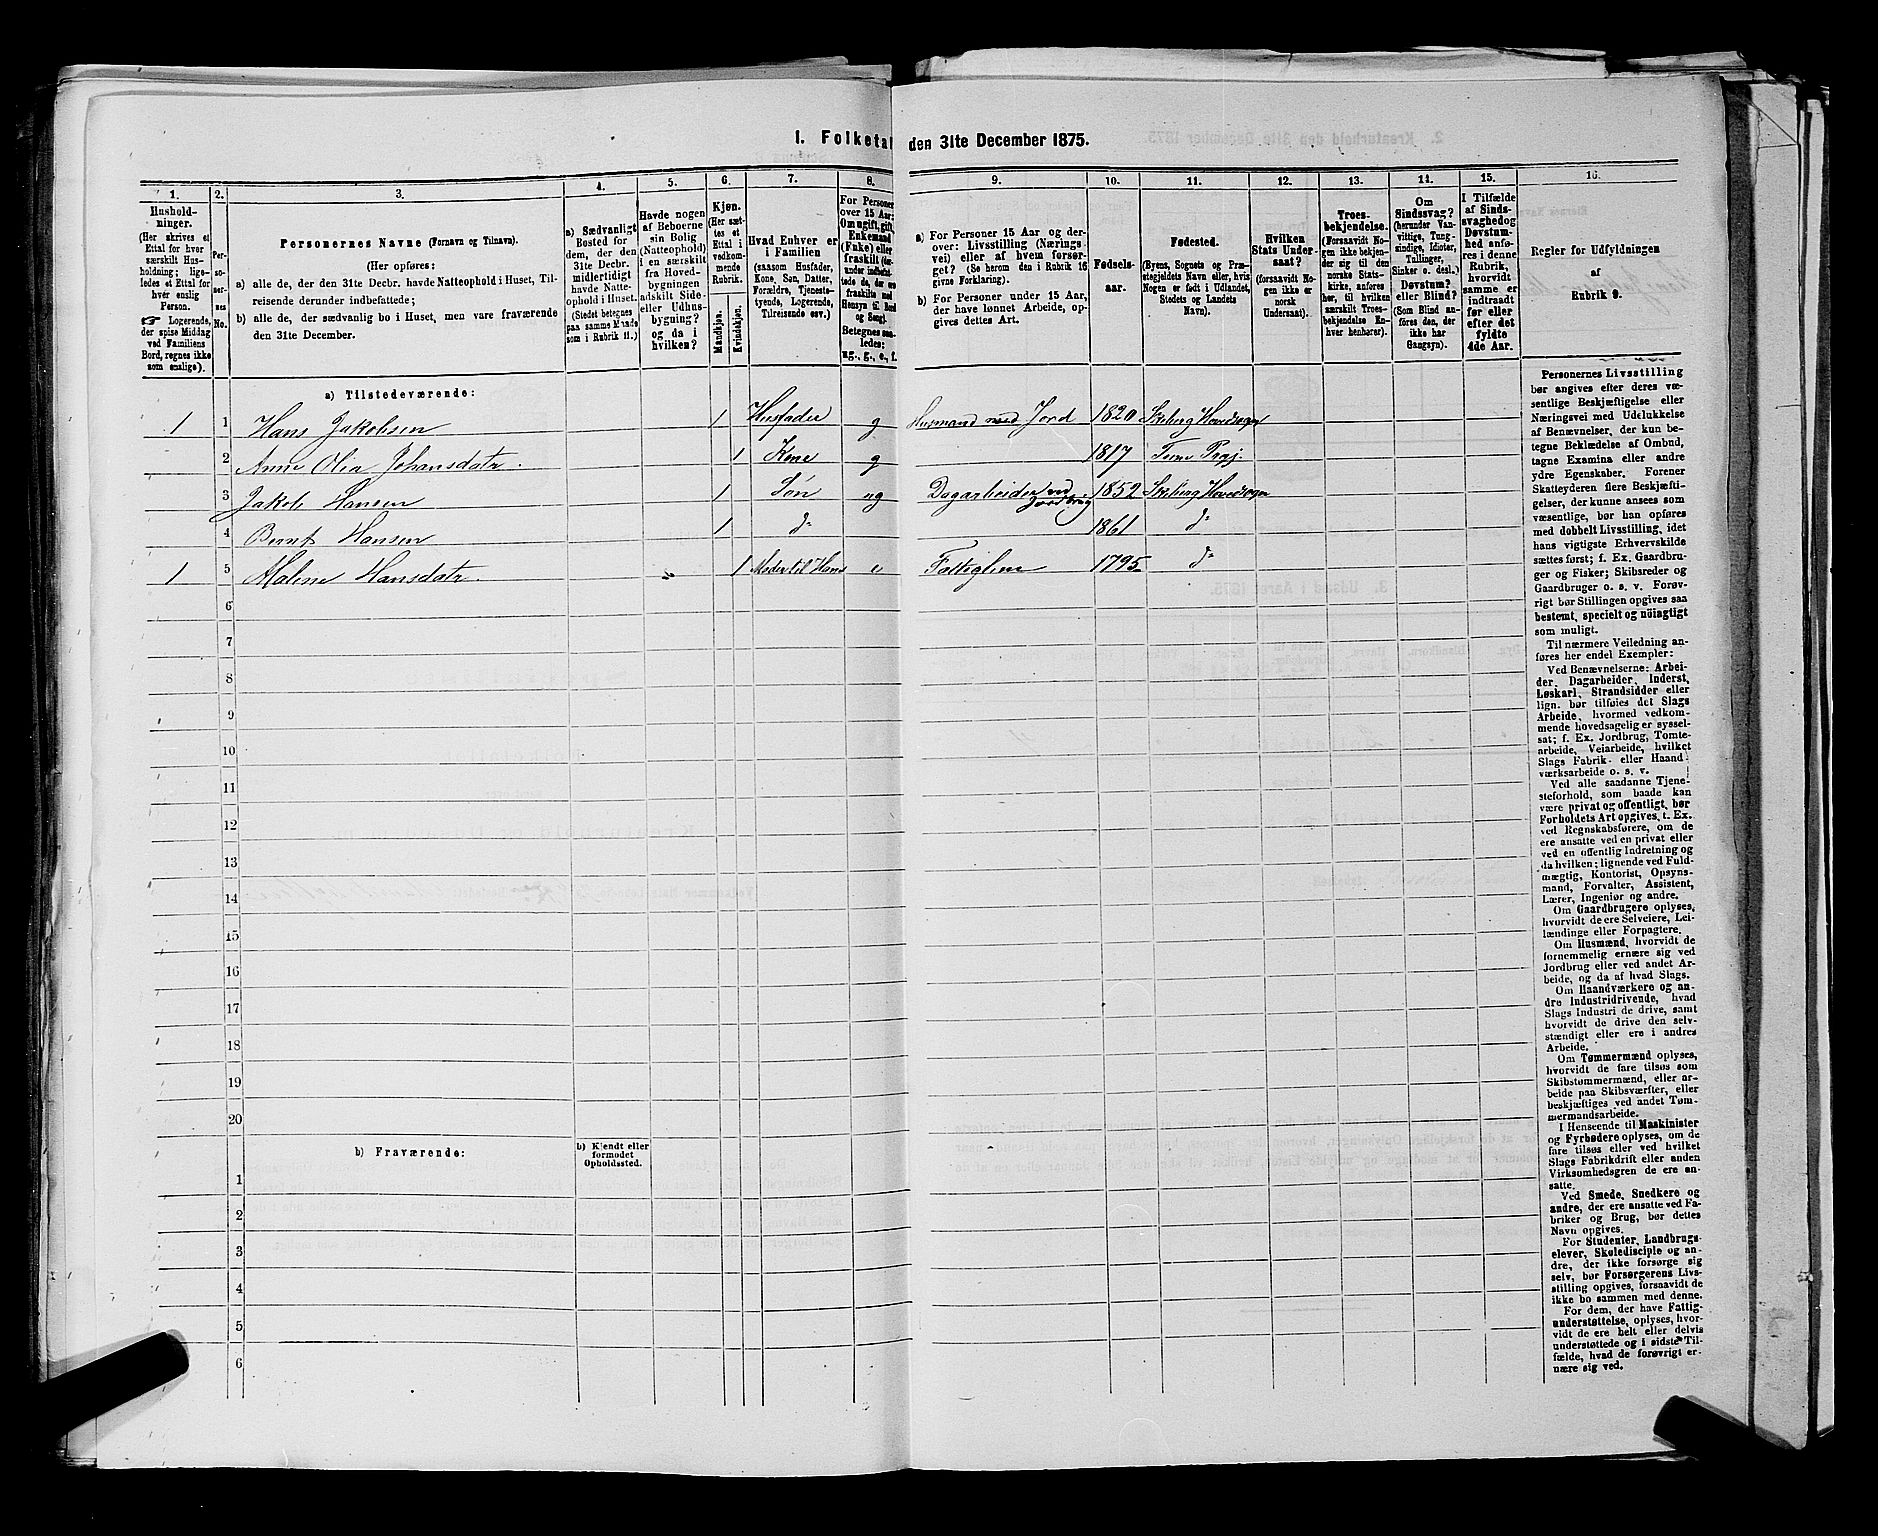 1. Folketal den 31te December 1875.
1.
2.
3.
4.
5.
6.
7.
8.
9.
10.
11.
12.
13.
14.
15.
16.
Hushold-
ninger.
(Her skrives et
Ettal for hver
særskilt Hus-
holdning; lige-
ledes et Ettal for
hver enslig
Person.
☞ Logerende,
der spise Middag
ved Familiens
Bord, regnes ikke
som enslige).
Per-
so-
ner-
nes
No.
Personernes Navne (Fornavn og Tilnavn).
(Her opføres:
a) alle de, der den 31te Decbr. havde Natteophold i Huset, Til-
reisende derunder indbefattede;
b) alle de, der sædvanlig bo i Huset, men vare fraværende
den 31te December.
a) Sædvanligt
Bosted for
dem, der den
31te Decbr.
midlertidigt
havde Natte-
ophold i Huset.
(Stedet betegnes
paa samme Maade
som i Rubrik 11.)
Havde nogen
af Beboerne
sin Bolig
(Natteophold)
i en særskilt
fra Hoved-
bygningen
adskilt Side-
eller Udhus-
bygning?
og da i
hvilken?
Kjøn.
(Her sæt-
tes et
Ettal i
vedkom-
mende
Rubrik.
Mandkjøn.
Kvindekjøn.
Hvad Enhver er
i Familien
(saasom Husfader,
Kone, Søn, Datter,
Forældre, Tjeneste-
tyende, Logerende,
Tilreisende osv.)
For Personer
over 15 Aar:
Om ugift, gift,
Enkemand
(Enke) eller
fraskilt
Betegnes saa-
ledes:
ug., g., e., f.
a) For Personer 15 Aar og der-
over: Livsstilling (Nærings-
vei) eller af hvem forsør-
get? (Se herom den i Rubrik 16
givne Forklaring).
b) For Personer under 15 Aar,
der have lønnet Arbeide, op-
gives dettes Art.
Fødsels-
aar.
Fødested.
(Byens, Sognets og Præ-
stegjeldets Navn eller, hvis
Nogen er født i Udlandet,
Stedets og Landets
Navn).
Hvilken
Stats Under-
saat?
(forsaavidt No-
gen ikke er
norsk
Undersaat).
Troes-
bekjendelse.
(Forsaavidt No-
gen ikke bekjen-
der sig til den
norske Stats-
kirke, anføres
her, til hvilken
særskilt Troes-
bekjendelse En-
hver henhører).
Om
Sindssvag?
(herunder Van-
vittige, Tung-
sindige, Idioter,
Tallinger,
Sinker o. desl.)
Døvstum?
eller Blind?
(Som Blind an-
føres den, der
ikke har
Gangsyn).
I Tilfælde
af Sinds-
svaghed og
Døvstum-
hed anfø-
res i denne
Rubrik,
hvorvidt
samme er
indtraadt
før eller
efter det
fyldte
4de Aar.
Regler for Udfyldningen
af
Rubrik 9.
a) Tilstedeværende:
1 1 Hans Jakobsen 1 Husfader g Husmand med Jord 1820 Skeberg Hovedsogn
2 Anne Olia Johansdatr. 1 Kone g 1817
3 Jakob Hansen 1 Søn ug Dagarbeider ved Jordbrug 1852 Skeberg Hovedsogn
4 Bernt Hansen 1 do 1861 do
1 5 Malene Hansdatr. 1 Moder til Hans e Fattiglem 1795 do
6
7
8
9
10
11
12
13
14
15
16
17
18
19
20
b) Fraværende:
b) Kjendt eller
formodet
Opholdssted.
1
2
3
4
5
6
Personernes Livsstilling
bør angives efter deres væ-
sentlige Beskjæftigelse eller
Næringsvei med Udelukkelse
af Benævnelser, der kun be-
tegne Beklædelse af Ombud,
tagne Examina eller andre
ydre Egenskaber. Forener
Skatteyderen flere Beskjæfti-
gelser, der kunne ansees som
væsentlige, bør han opføres
med dobbelt Livsstilling, idet
hans vigtigste Erhvervskilde
sættes først; f. Ex. Gaardbru-
ger og Fisker; Skibsreder og
Gaardbruger o. s. v. Forøv-
rigt bør Stillingen opgives saa
bestemt, specielt og nöiagtigt
som muligt.
Til nærmere Veiledning an-
føres her endel Exempler:
Ved Benævnelserne: Arbei-
der, Dagarbeider, Inderst,
Løskarl, Strandsidder eller
lign. bør tilføies det Slags
Arbeide, hvormed vedkom-
mende hovedsagelig er syssel-
sat; f. Ex. Jordbrug, Tomte-
arbeide, Veiarbeide, hvilket
Slags Fabrik- eller Haand-
værksarbeide o. s. v.
Ved alle saadanne Tjene-
steforhold, som baade kan
være privat og offentligt, bør
Forholdets Art opgives, t. Ex.
ved Regnskabsførere, om de
ere ansatte ved en privat eller
ved en offentlig Indretning og
da hvilken; lignende ved Fuld-
mægtig, Kontorist, Opsyns-
mand, Forvalter, Assistent,
Lærer, Ingeniør og andre.
Om Gaardbrugere oplyses,
hvorvidt de ere Selveiere, Lei-
lændinge eller Forpagtere.
Om Husmænd, hvorvidt de
fornemmelig ernære sig ved
Jordbrug eller ved andet Ar-
beide, og da af hvad Slags.
Om Haandværkere og an-
dre Industridrivende, hvad
Slags Industri de drive, samt
hvorvidt de drive den selv-
stændigt eller ere i andres
Arbeide.
Om Tømmermænd oplyses,
hvorvidt de fare tilsøs som
Skibstømmermænd, eller ar-
beide paa Skibsværfter, eller
beskjæftiges ved andet Tøm-
mermandsarbeide.
I Henseende til Maskinister
og Fyrbødere oplyses, om de
fare tilsøs eller ved hvilket
Slags Fabrikdrift eller anden
Virksomhedsgren de ere an-
satte.
Ved Smede, Snedkere og
andre, der ere ansatte ved Fa-
briker og Brug, bør dettes
Navn opgives.
For Studenter, Landbrugs-
elever, Skoledisciple og an-
dre, der ikke forsørge sig
selv, bør Forsørgerens Livs-
stilling opgives, forsaavidt de
ikke bo sammen med denne.
For dem, der have Fattig-
understøttelse, oplyses, hvor-
vidt de ere helt eller delvis
understøttede og i sidste Til-
fælde, hvad de forøvrigt er-
nære sig ved.